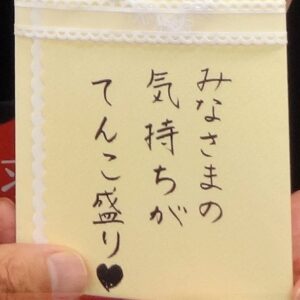 みなさまの
気持ちが
てんこ盛り♥